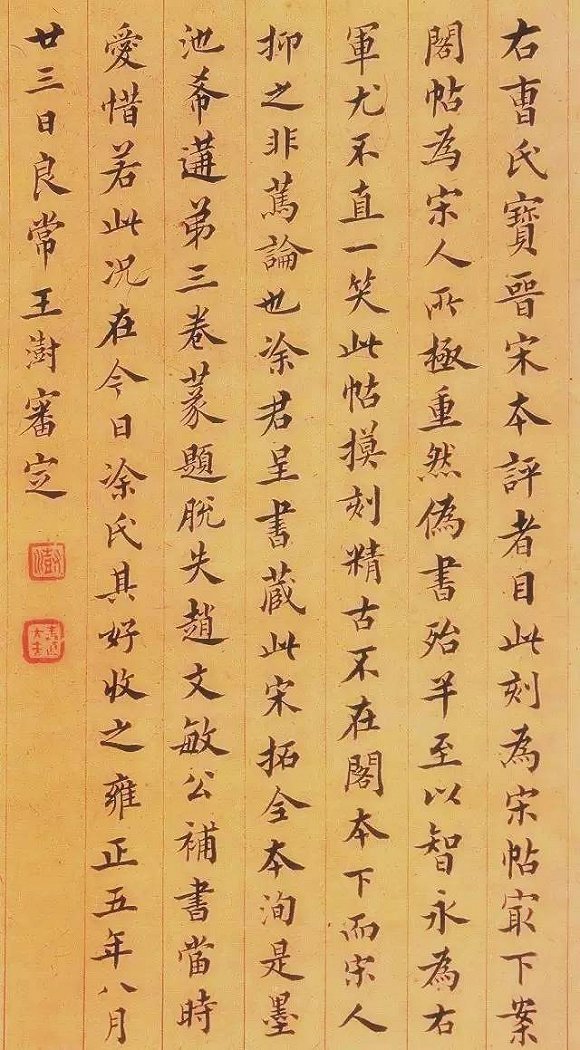 右曹氏寶晉宋本評者目此刻為宋帖冣下案
閣帖為宋人所極重然偽書殆半至以智永為右
軍尤不直一笑此帖摸刻精古不在閣本下而宋人
抑之非篤論也涂君呈書藏此宋拓全本洵是墨
池希遘弟三卷篆題脫失趙文敏公補書當時
愛惜若此况在今日涂氏其好收之雍正五年八月
廿三日良常王澍審定
澍